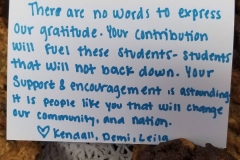 There are no words to express
Our gratitude. Your contribution
will fuel these students- students
that will not back down. Your
Support & encouragement is astounding
It is people like you that will change
our community, and nation.
♡ Kendall, Demi, Leila